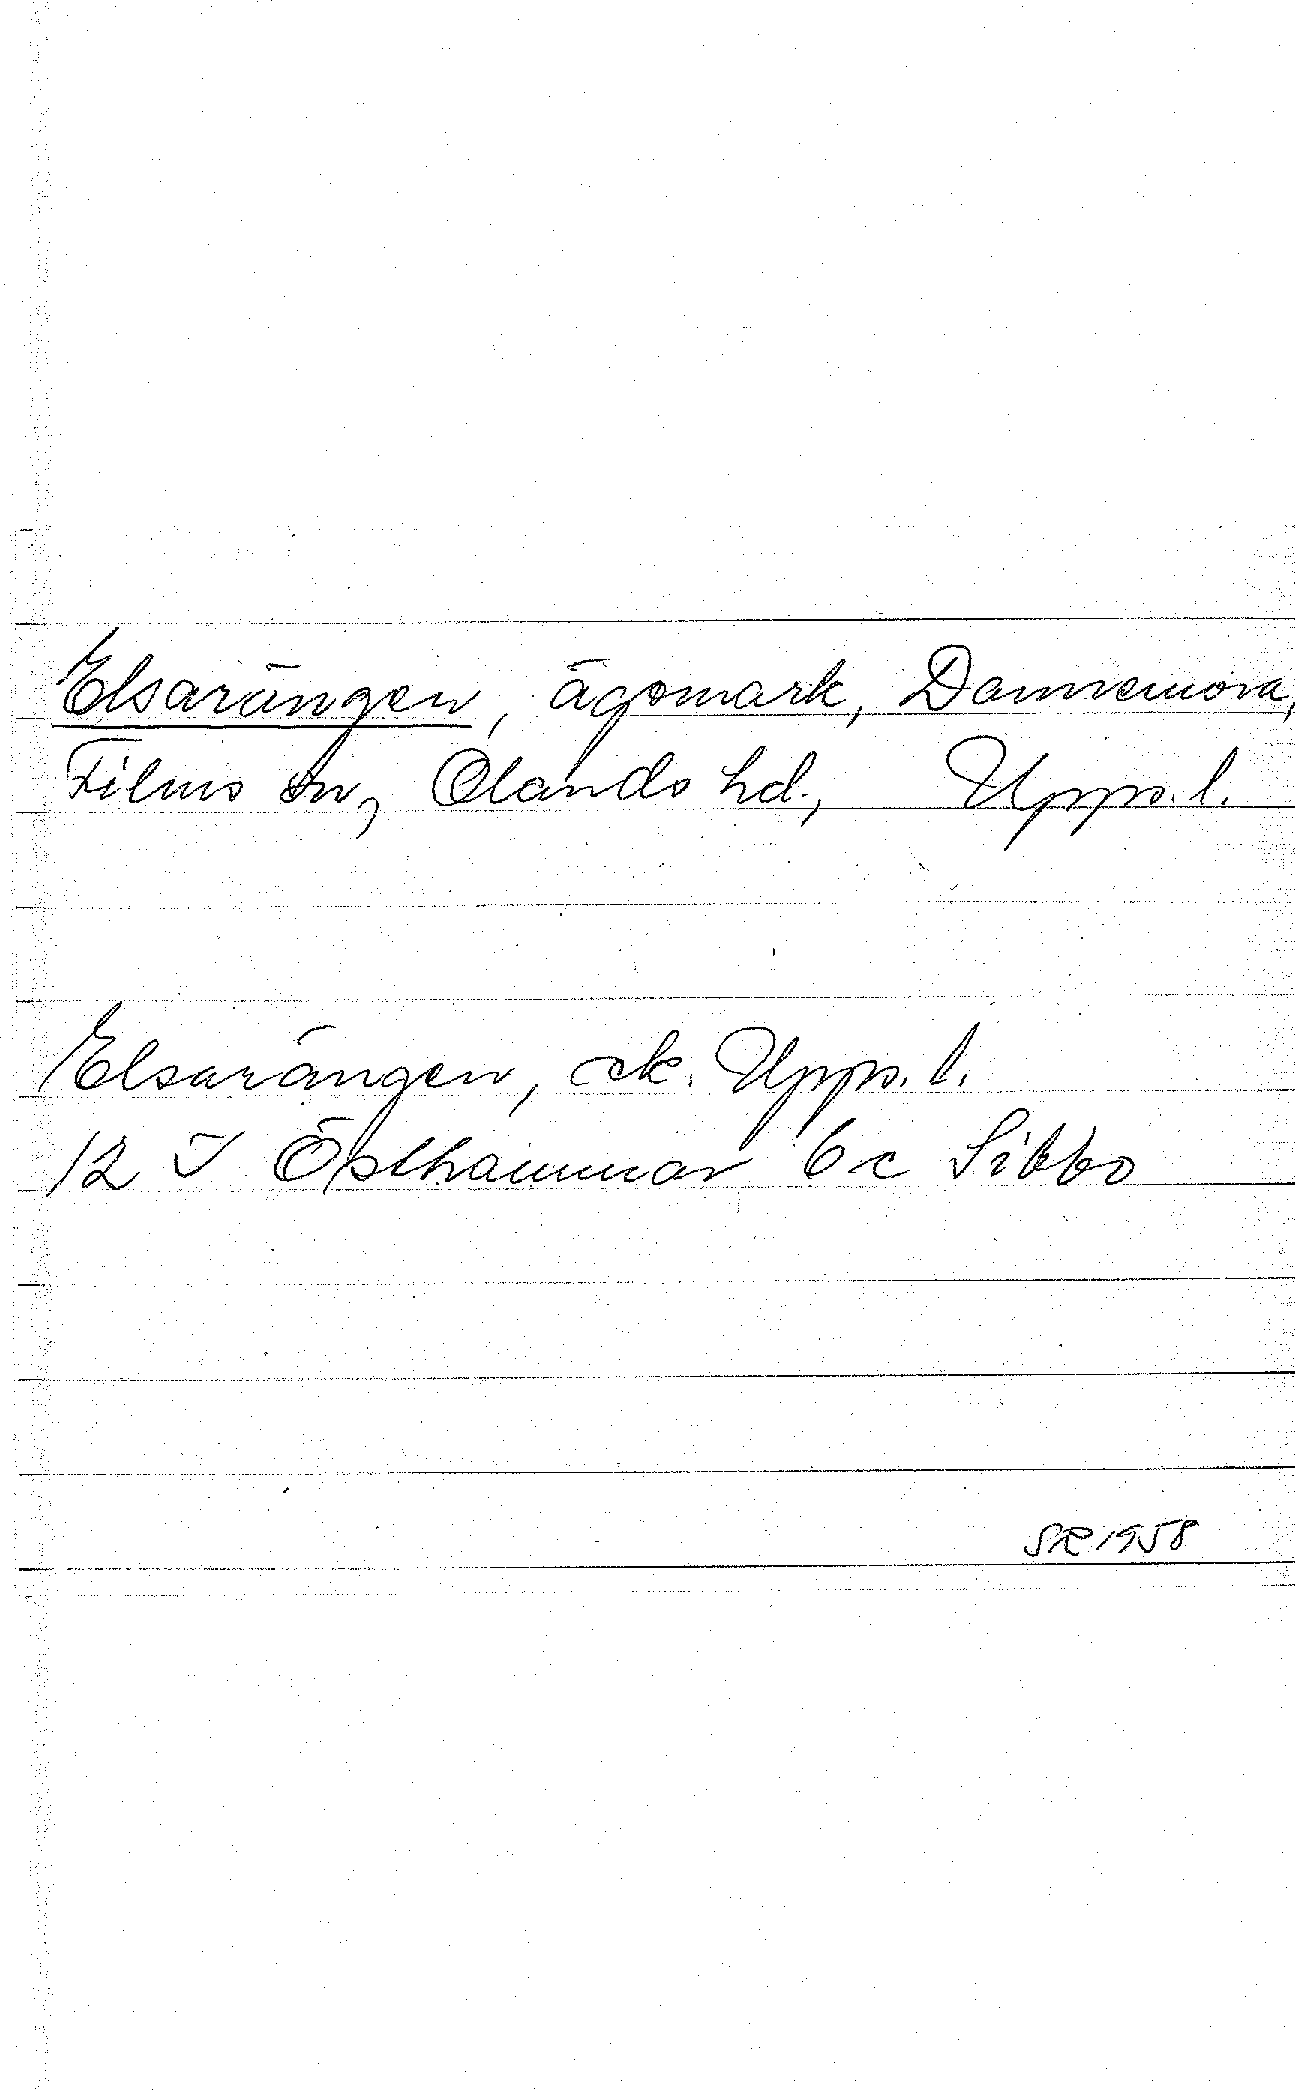 Elsarängen, ägomark, Dannemora,
Films sn, Olands hd., Upps. l.
Elsarängen, ek. Upps. l.
12 I Östhammar 6 c Sibbo
SR 1958